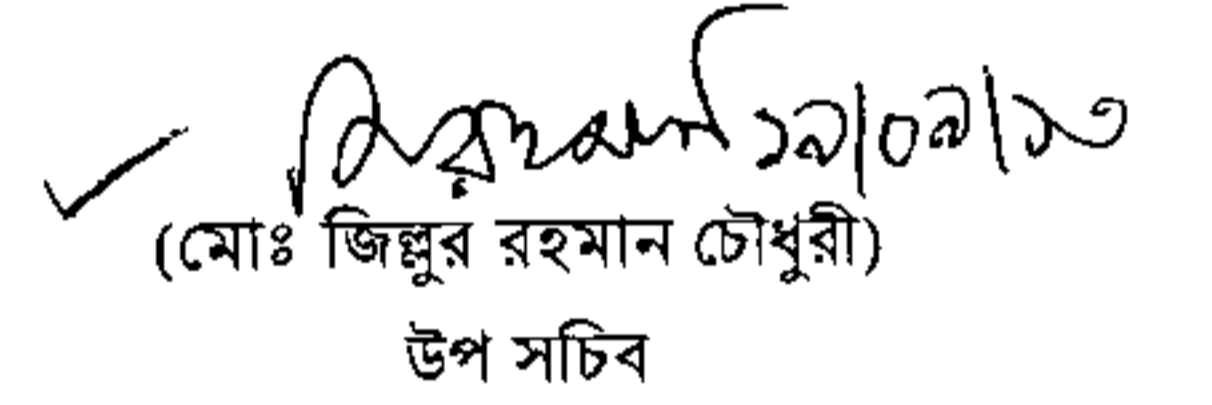 ১৯/০৯/১৩
(মোঃ জিল্লুর রহমান চৌধুরী)
উপ সচিব